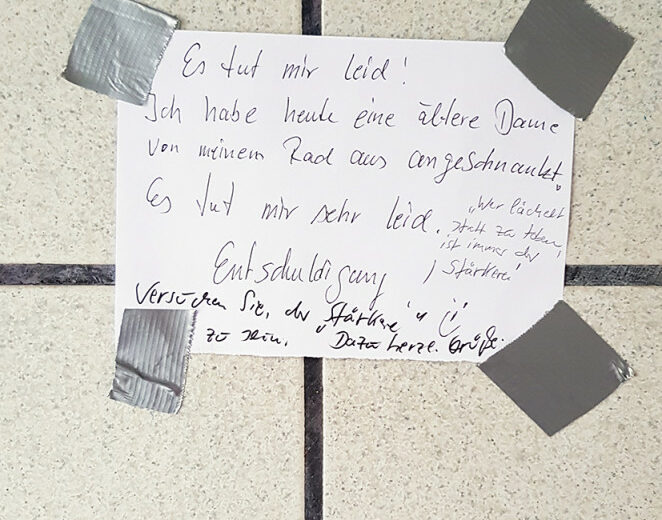 Es tut mir leid!
Ich habe heute eine ältere Dame
von meinem Rad aus angeschnauzt.
Es tut mir sehr leid.
Entschuldigung
„Wer lächelt
statt zu toben,
ist immer der
Stärkere"
Versuchen Sie, der „Stärkere"
zu sein. Dazu herzl. Grüße.